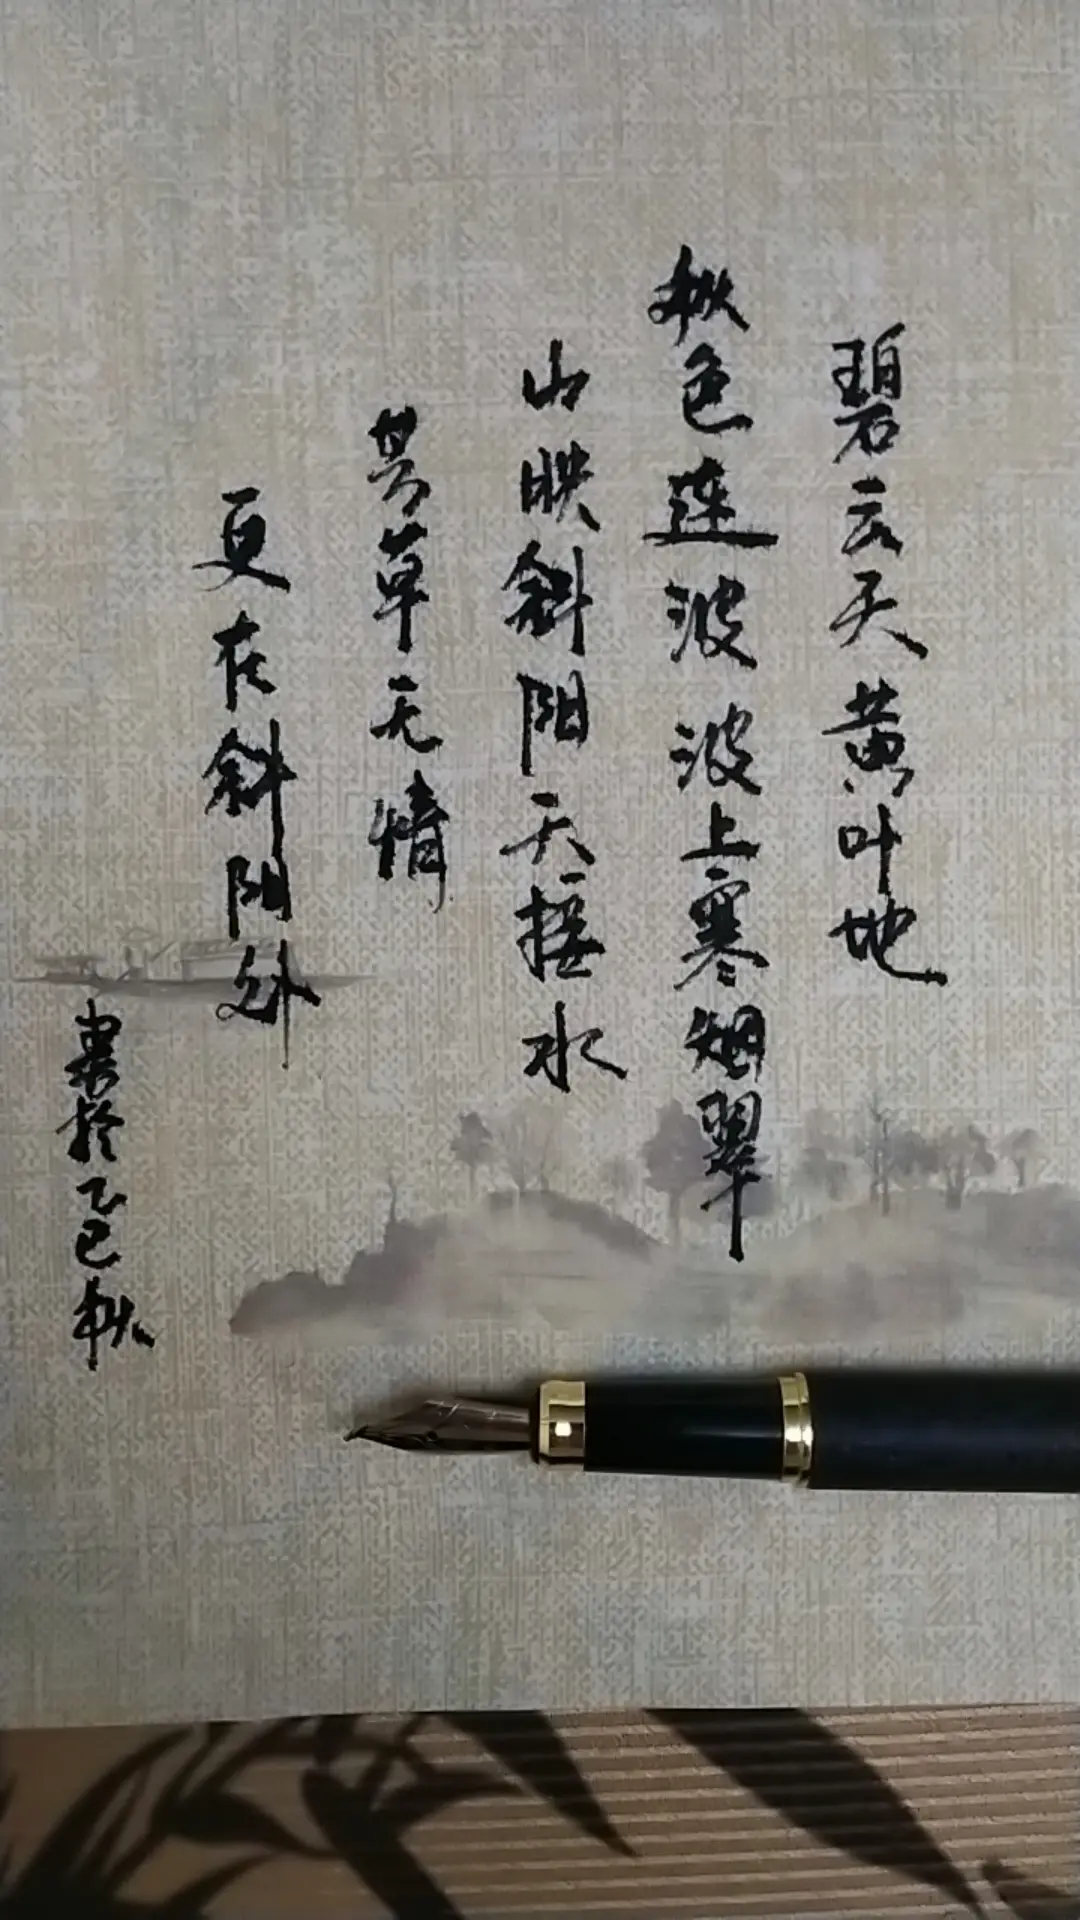 碧云天黄叶地
秋色连波波上寒烟翠
山映斜阳天接水
芳草无情
更在斜阳外
于乙巳秋